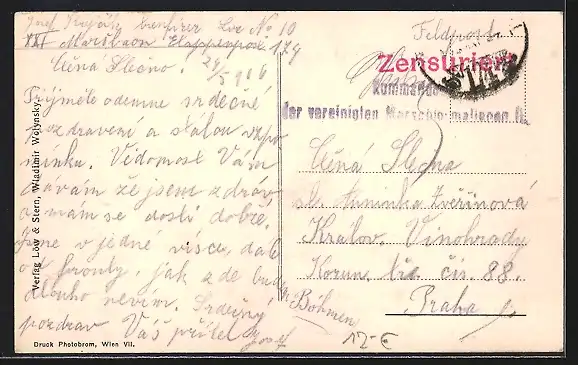 Josef
XXI Maršbaon Etappenpost 174
Ctěná Slečno! 24/5 916
Přijměte odemne srdečné
pozdravení a stálou vzpo
mínku. Vědomost Vám
dávám že jsem zdráv
a mám se dosti dobře.
Jsme v jedné vísce, dál
od fronty, jak zde budem
dlouho nevím. Srdečný
pozdrav Váš přítel Josef
Verlag Löw & Stern, Wladimir Wolynsky.
Druck Photobrom, Wien VII.
Feldpost
Zensuriert
Kommando
der vereinigten Marschformationen
Ctěná Slečna
sl. Aninka Zvěřinová
Králov. Vinohrady
Korun. tř. čís. 88.
Praha
Böhmen
12-€